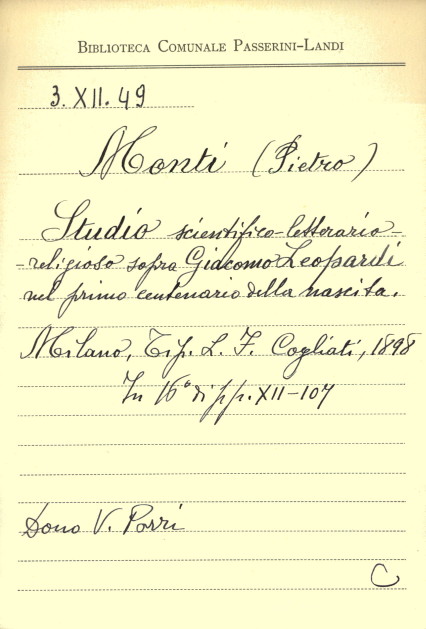 BIBLIOTECA COMUNALE PASSERINI-LANDI
3. XII. 49
Monti (Pietro)
Studio scientifico-letterario-
-religioso sopra Giacomo Leopardi
nel primo centenario della nascita.
Milano, Tip. L. F. Cogliati, 1898
In 16° di pp. XII-107
Dono V. Porri
C